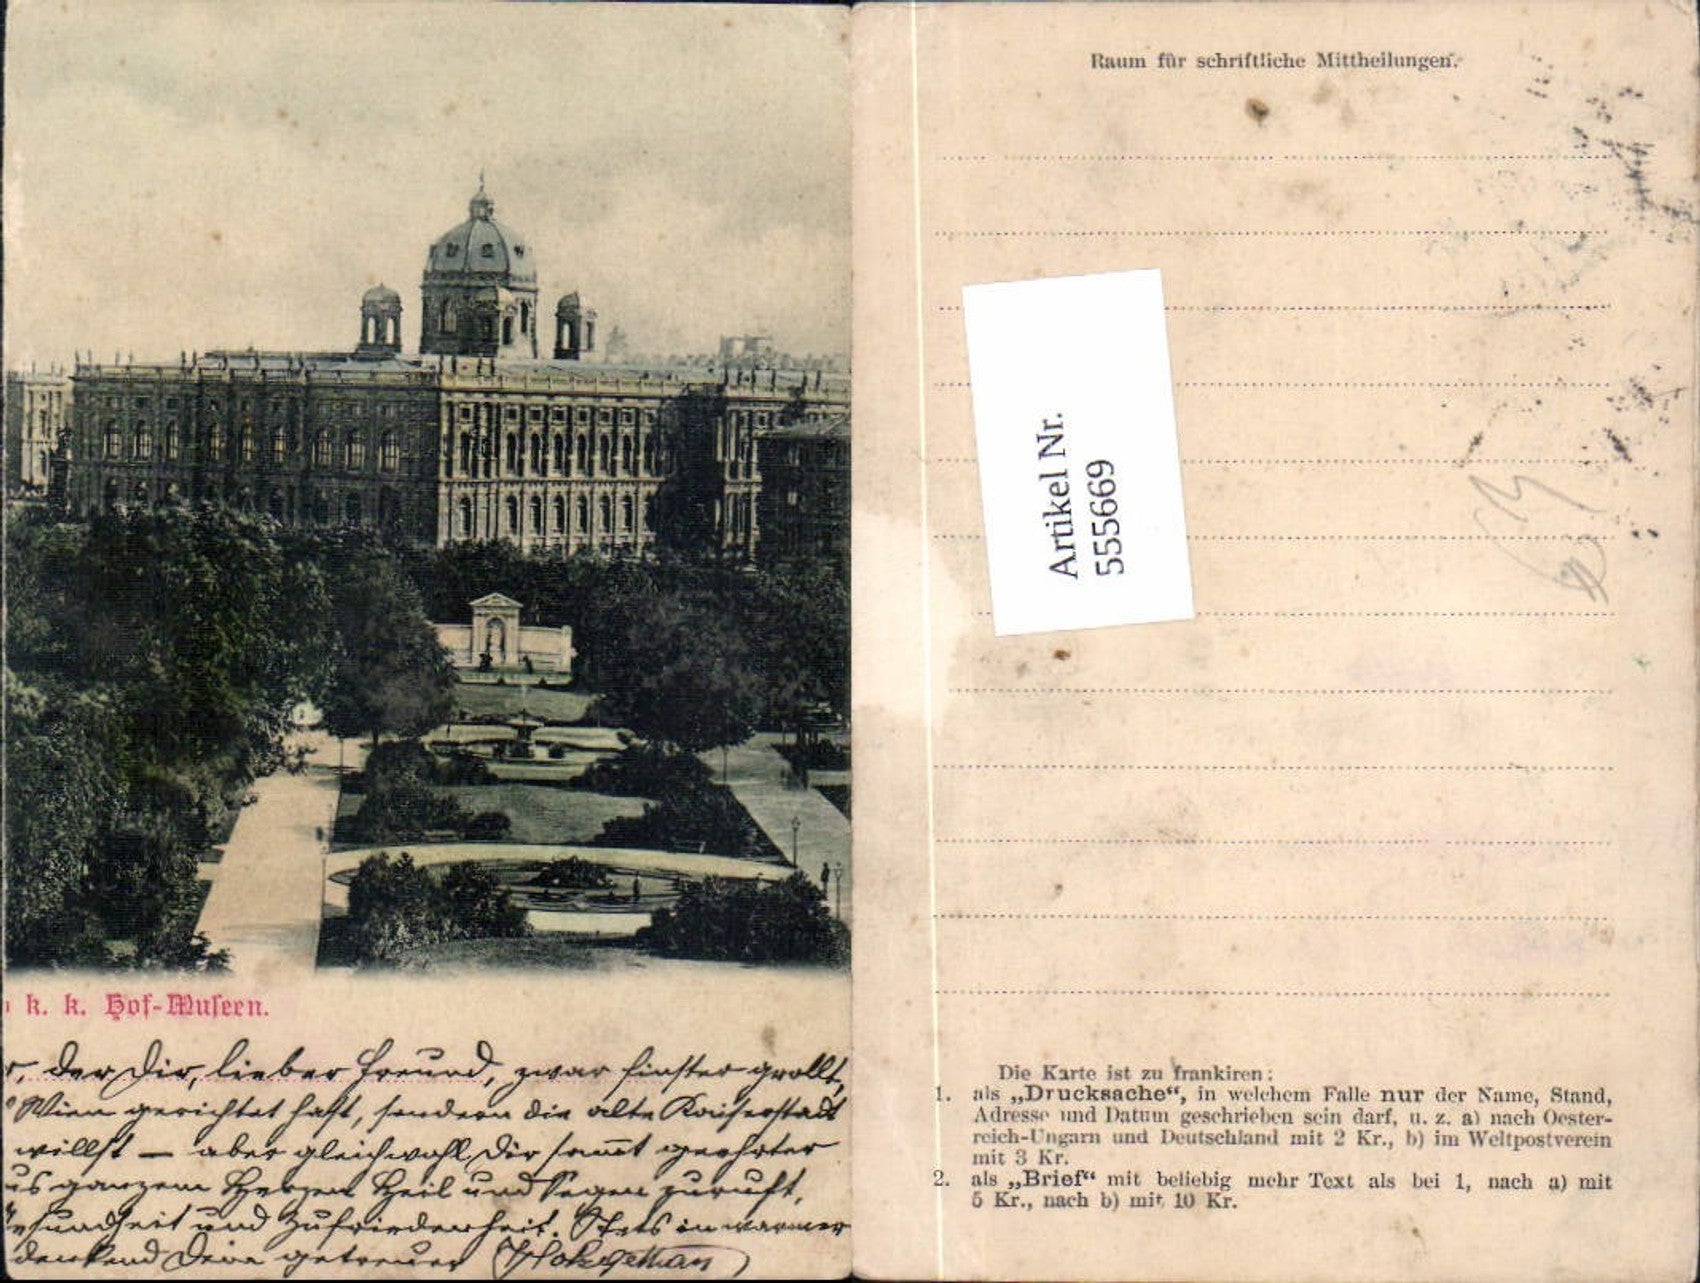 k. k. Hof-Museen.
der Dir, lieber Freund, zwar finster grollt,
Wien gerichtet hast, sondern die alte Kaiserstadt
willst — aber gleichwohl Dir sammt geehrter
us ganzem Herzen Heil und Segen zuruft,
esundheit und Zufriedenheit. Stets in warmer
denkend Dein getreuer
Raum für schriftliche Mittheilungen.
Artikel Nr.
555669
Die Karte ist zu frankiren:
1. als „Drucksache“, in welchem Falle nur der Name, Stand,
Adresse und Datum geschrieben sein darf, u. z. a) nach Oester-
reich-Ungarn und Deutschland mit 2 Kr., b) im Weltpostverein
mit 3 Kr.
2. als „Brief“ mit beliebig mehr Text als bei 1, nach a) mit
5 Kr., nach b) mit 10 Kr.